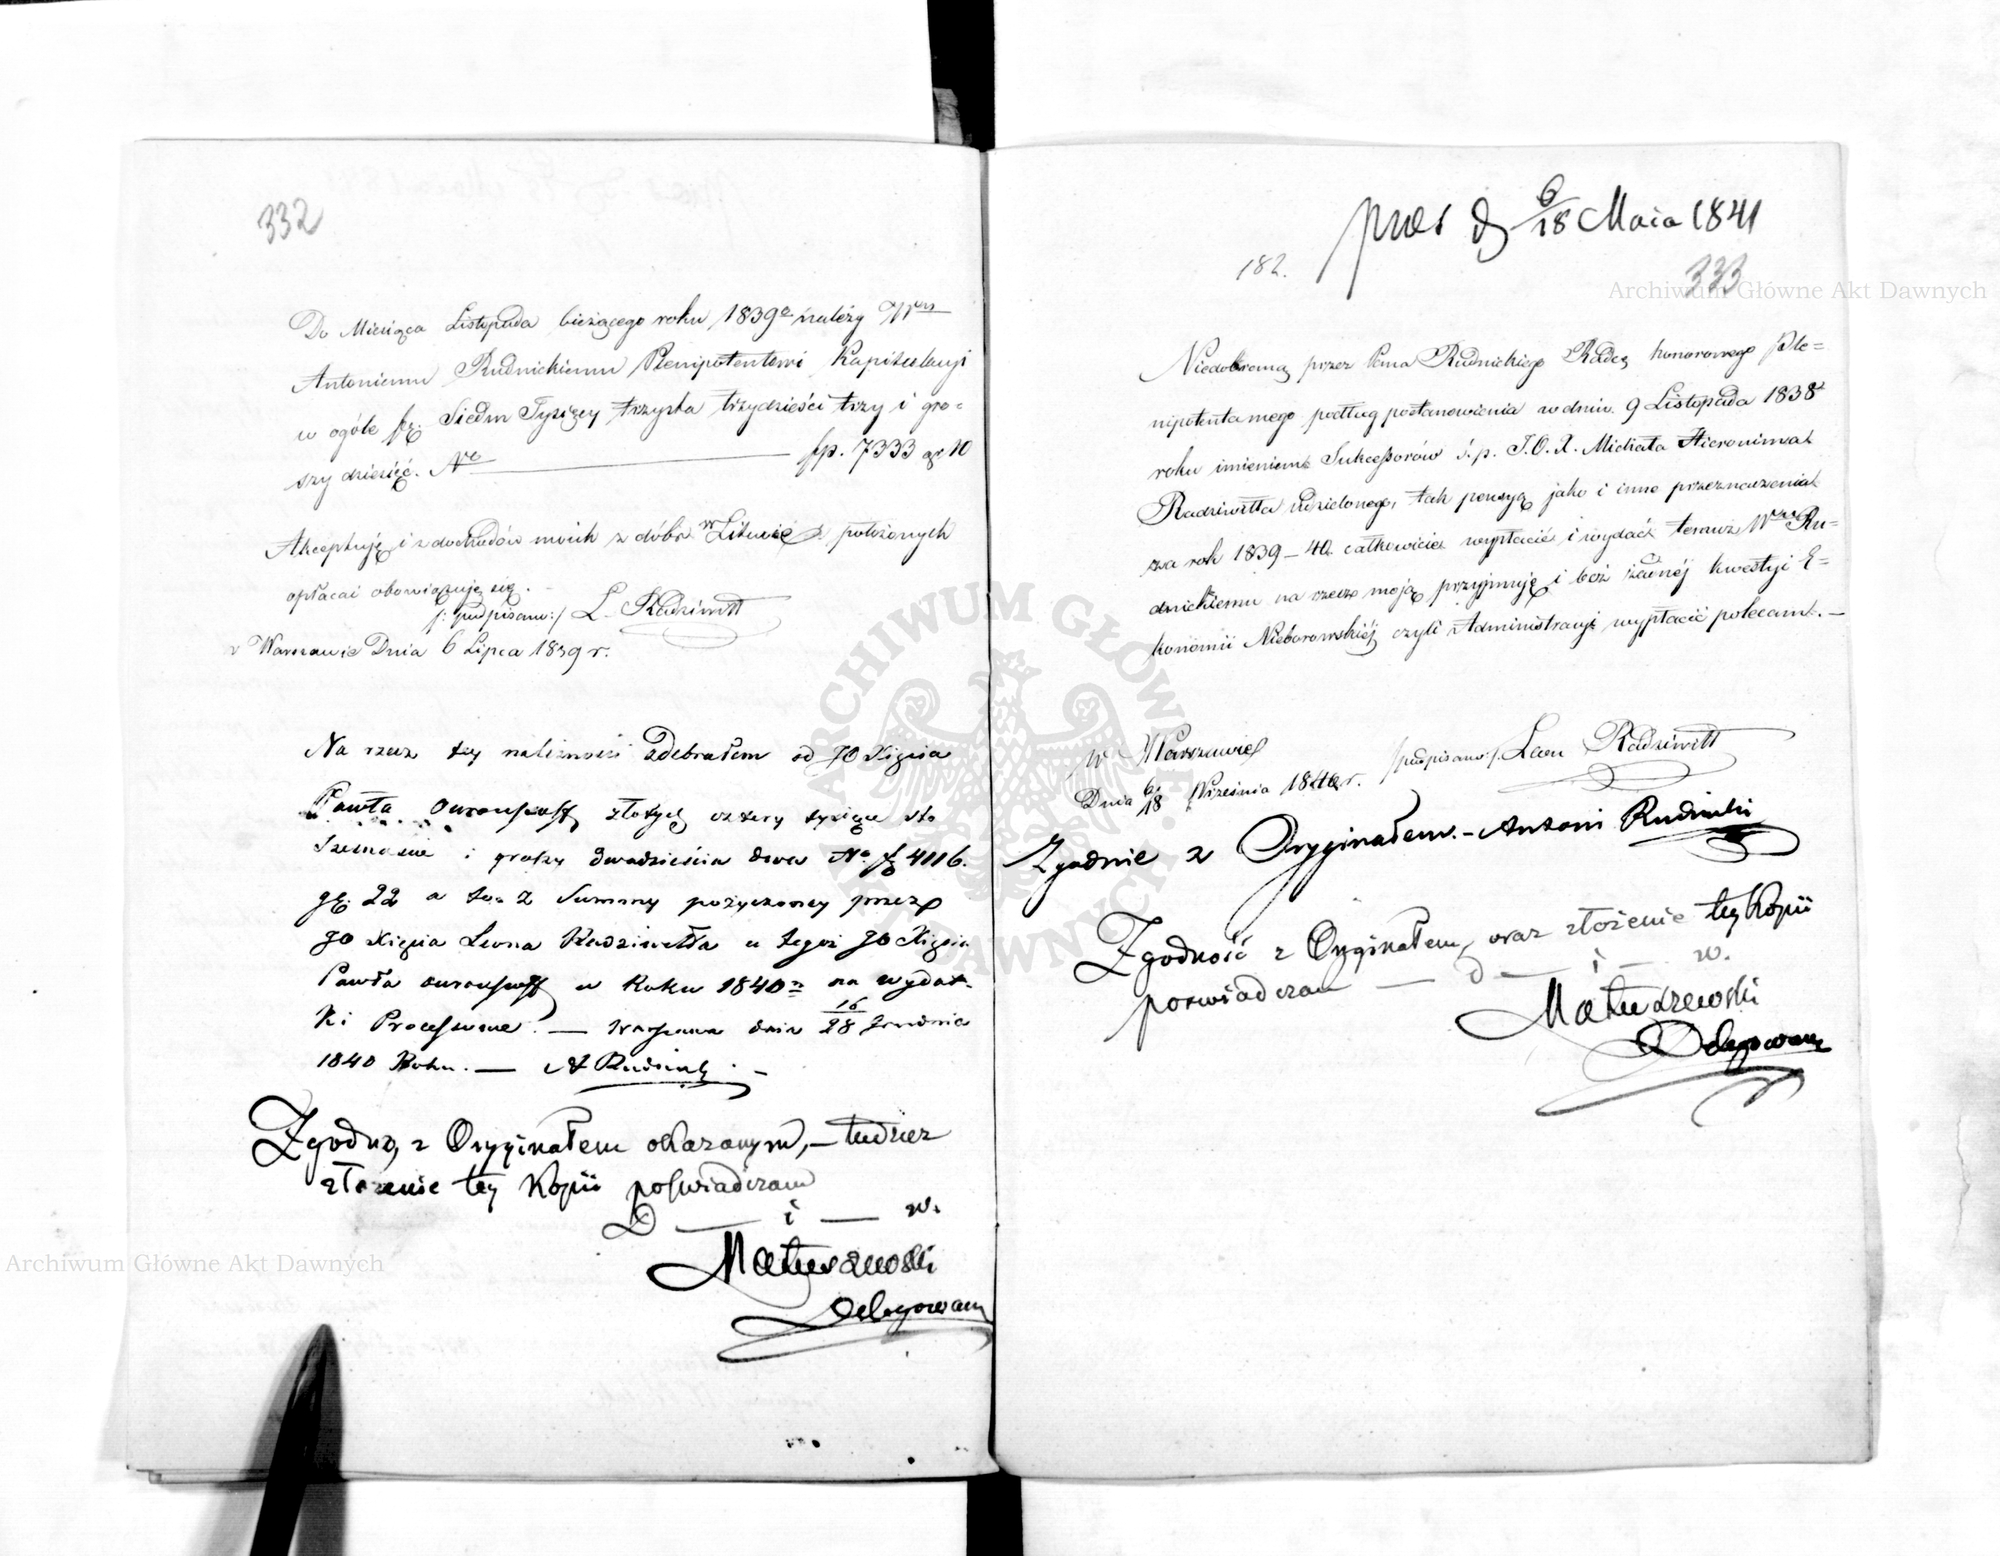 332
Do Miesiąca Listopada bieżącego roku 1839º należy Wmu
Antoniemu Rudnickiemu Plenipotentowi Kapitulacyi
w ogóle fp. Siedm Tysięcy trzysta trzydzieści trzy i gro=
szy dziesięć. Nº fp. 7333 gr 10
Akceptuję i z dochodów moich z dóbr w Litwie położonych
opłacać obowiązuję się.
/: podpisano :/ L. Radziwiłł
w Warszawie Dnia 6 Lipca 1839 r.
Na rzecz tey należności odebrałem od JO Xięcia
Pawła złotych cztery tysiące sto
szesnaście i groszy dwadzieścia dwa Nº 4116.
gr. 22 a to z Summy pożyczoney przez
JO Xięcia Leona Radziwiłła u tegoż JO Xięcia
Pawła w Roku 1840 na wydat-
ki Processowe. — Warszawa dnia 16/28 Grudnia
1840 Roku. — A Rudnicki
Zgodno, z Oryginałem okazanym, — tudzież
złożenie tey Kopii poświadczam
D — i — w.
Matuszewski
Delegowany
prez d 6/18 Maia 1841
182.
333
Niedobraną przez Pana Rudnickiego Radcę honorowego Ple=
nipotenta mego podług postanowienia w dniu 9 Listopada 1838
roku imieniem Sukcessorów ś. p. J. O. X. Michała Hieronima
Radziwiłła udzielonego, tak pensyą jako i inne przeznaczenia
za rok 1839–40 całkowicie wypłacić i wydać teraz Wmu Ru=
dnickiemu na rzecz moją przyjmuję i bez żadnéj kwestyi E=
konomii Nieborowskiéj czyli Administracyi wypłacić polecam. —
w Warszawie
Dnia 6/18 Września 1840 r. /podpisano:/ Leon Radziwiłł
Zgodnie z Oryginałem. – Antoni Rudnicki
Zgodność z Oryginałem, oraz złożenie tey Kopii
poswiadczam — D — i — w.
Matuszewski
Delegowany
Archiwum Główne Akt Dawnych
Archiwum Główne Akt Dawnych
ARCHIWUM GŁÓWNE AKT DAWNYCH